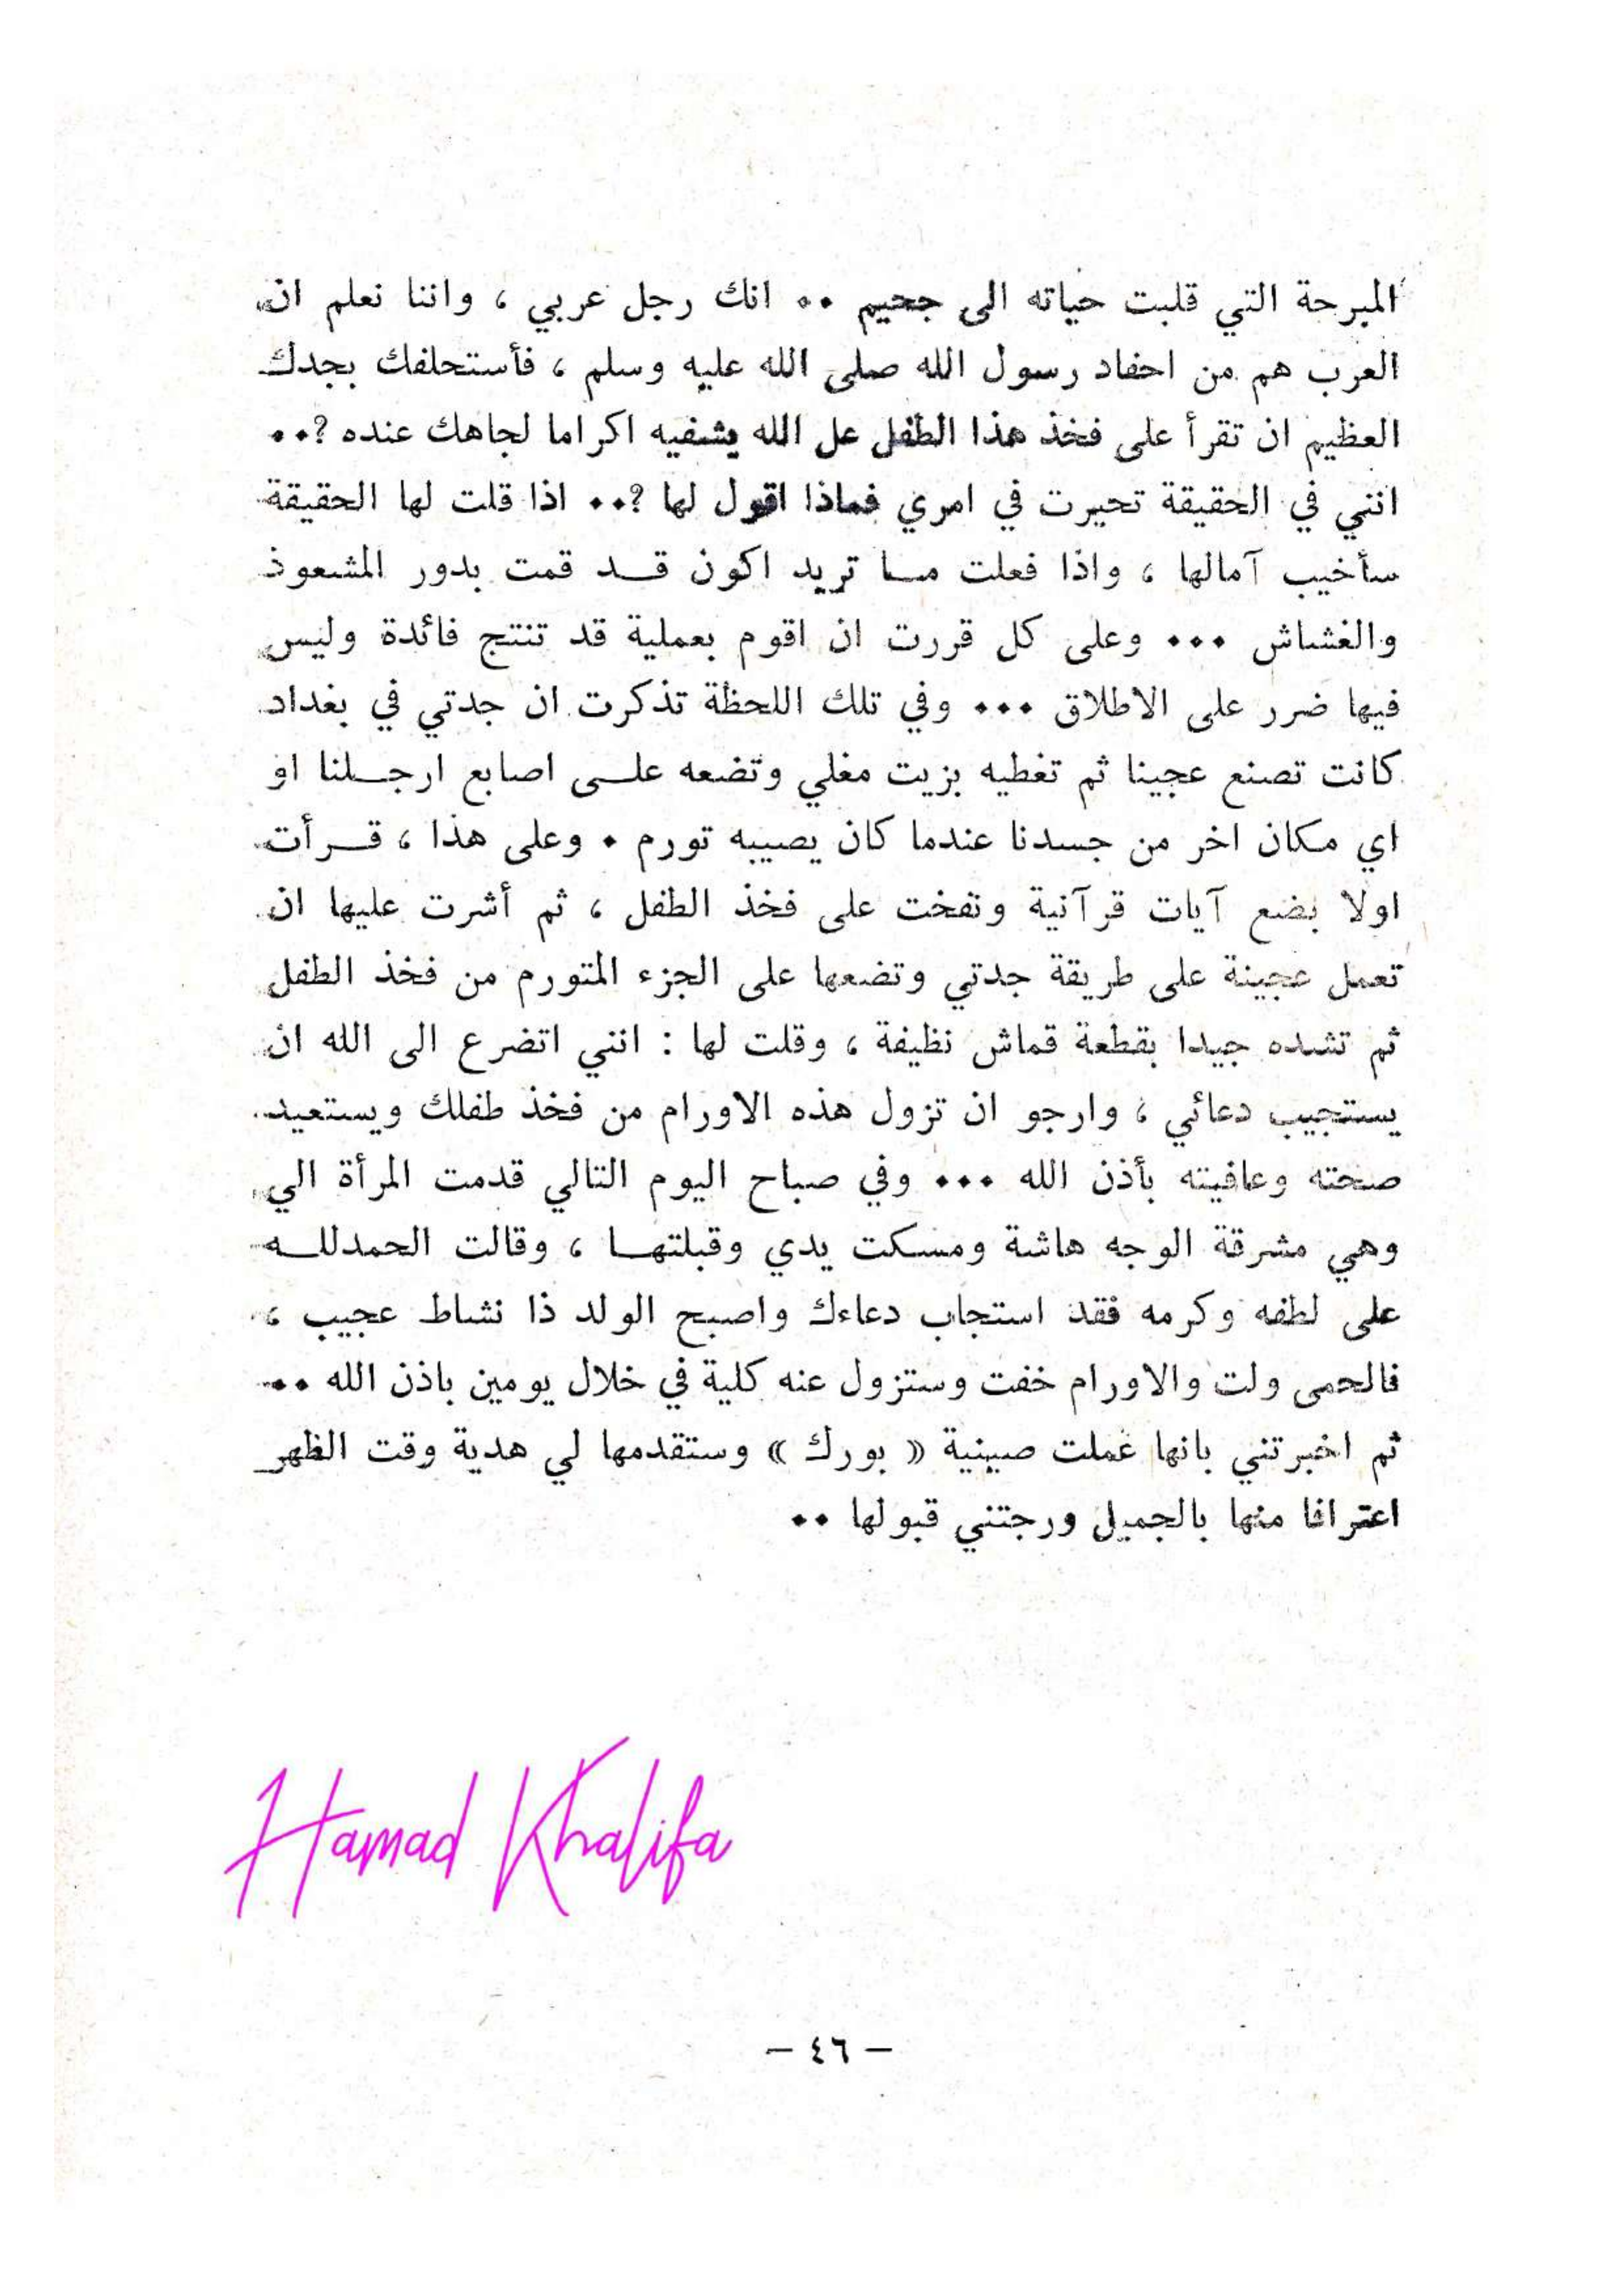 المبرحة التي قلبت حياته الى جحيم ٠٠ انك رجل عربي ، واننا نعلم ان
العرب هم من احفاد رسول الله صلى الله عليه وسلم ، فأستحلفك بجدك
العظيم ان تقرأ على فخذ هذا الطفل عل الله يشفيه اكراما لجاهك عنده ؟٠٠
انني في الحقيقة تحيرت في امري فماذا اقول لها ؟٠٠ اذا قلت لها الحقيقة
سأخيب آمالها ، واذا فعلت مــا تريد اكون قــد قمت بدور المشعوذ
والغشاش ٠٠٠ وعلى كل قررت ان اقوم بعملية قد تنتج فائدة وليس
فيها ضرر على الاطلاق ٠٠٠ وفي تلك اللحظة تذكرت ان جدتي في بغداد
كانت تصنع عجينا ثم تغطيه بزيت مغلي وتضعه علــى اصابع ارجــلنا او
اي مكان اخر من جسدنا عندما كان يصيبه تورم ٠ وعلى هذا ، قــرأت
اولا بضع آيات قرآنية ونفخت على فخذ الطفل ، ثم أشرت عليها ان
تعمل عجينة على طريقة جدتي وتضعها على الجزء المتورم من فخذ الطفل
ثم تشده جيدا بقطعة قماش نظيفة ، وقلت لها : انني اتضرع الى الله ان
يستجيب دعائي ، وارجو ان تزول هذه الاورام من فخذ طفلك ويستعيد
صحته وعافيته بأذن الله ٠٠٠ وفي صباح اليوم التالي قدمت المرأة الي
وهي مشرقة الوجه هاشة ومسكت يدي وقبلتهــا ، وقالت الحمدللــه
على لطفه وكرمه فقد استجاب دعاءك واصبح الولد ذا نشاط عجيب ،
فالحمى ولت والاورام خفت وستزول عنه كلية في خلال يومين باذن الله ٠٠
ثم اخبرتني بانها عملت صينية « بورك » وستقدمها لي هدية وقت الظهر
اعترافا منها بالجميل ورجتني قبولها ٠٠
Hamad Khalifa
– ٤٦ –